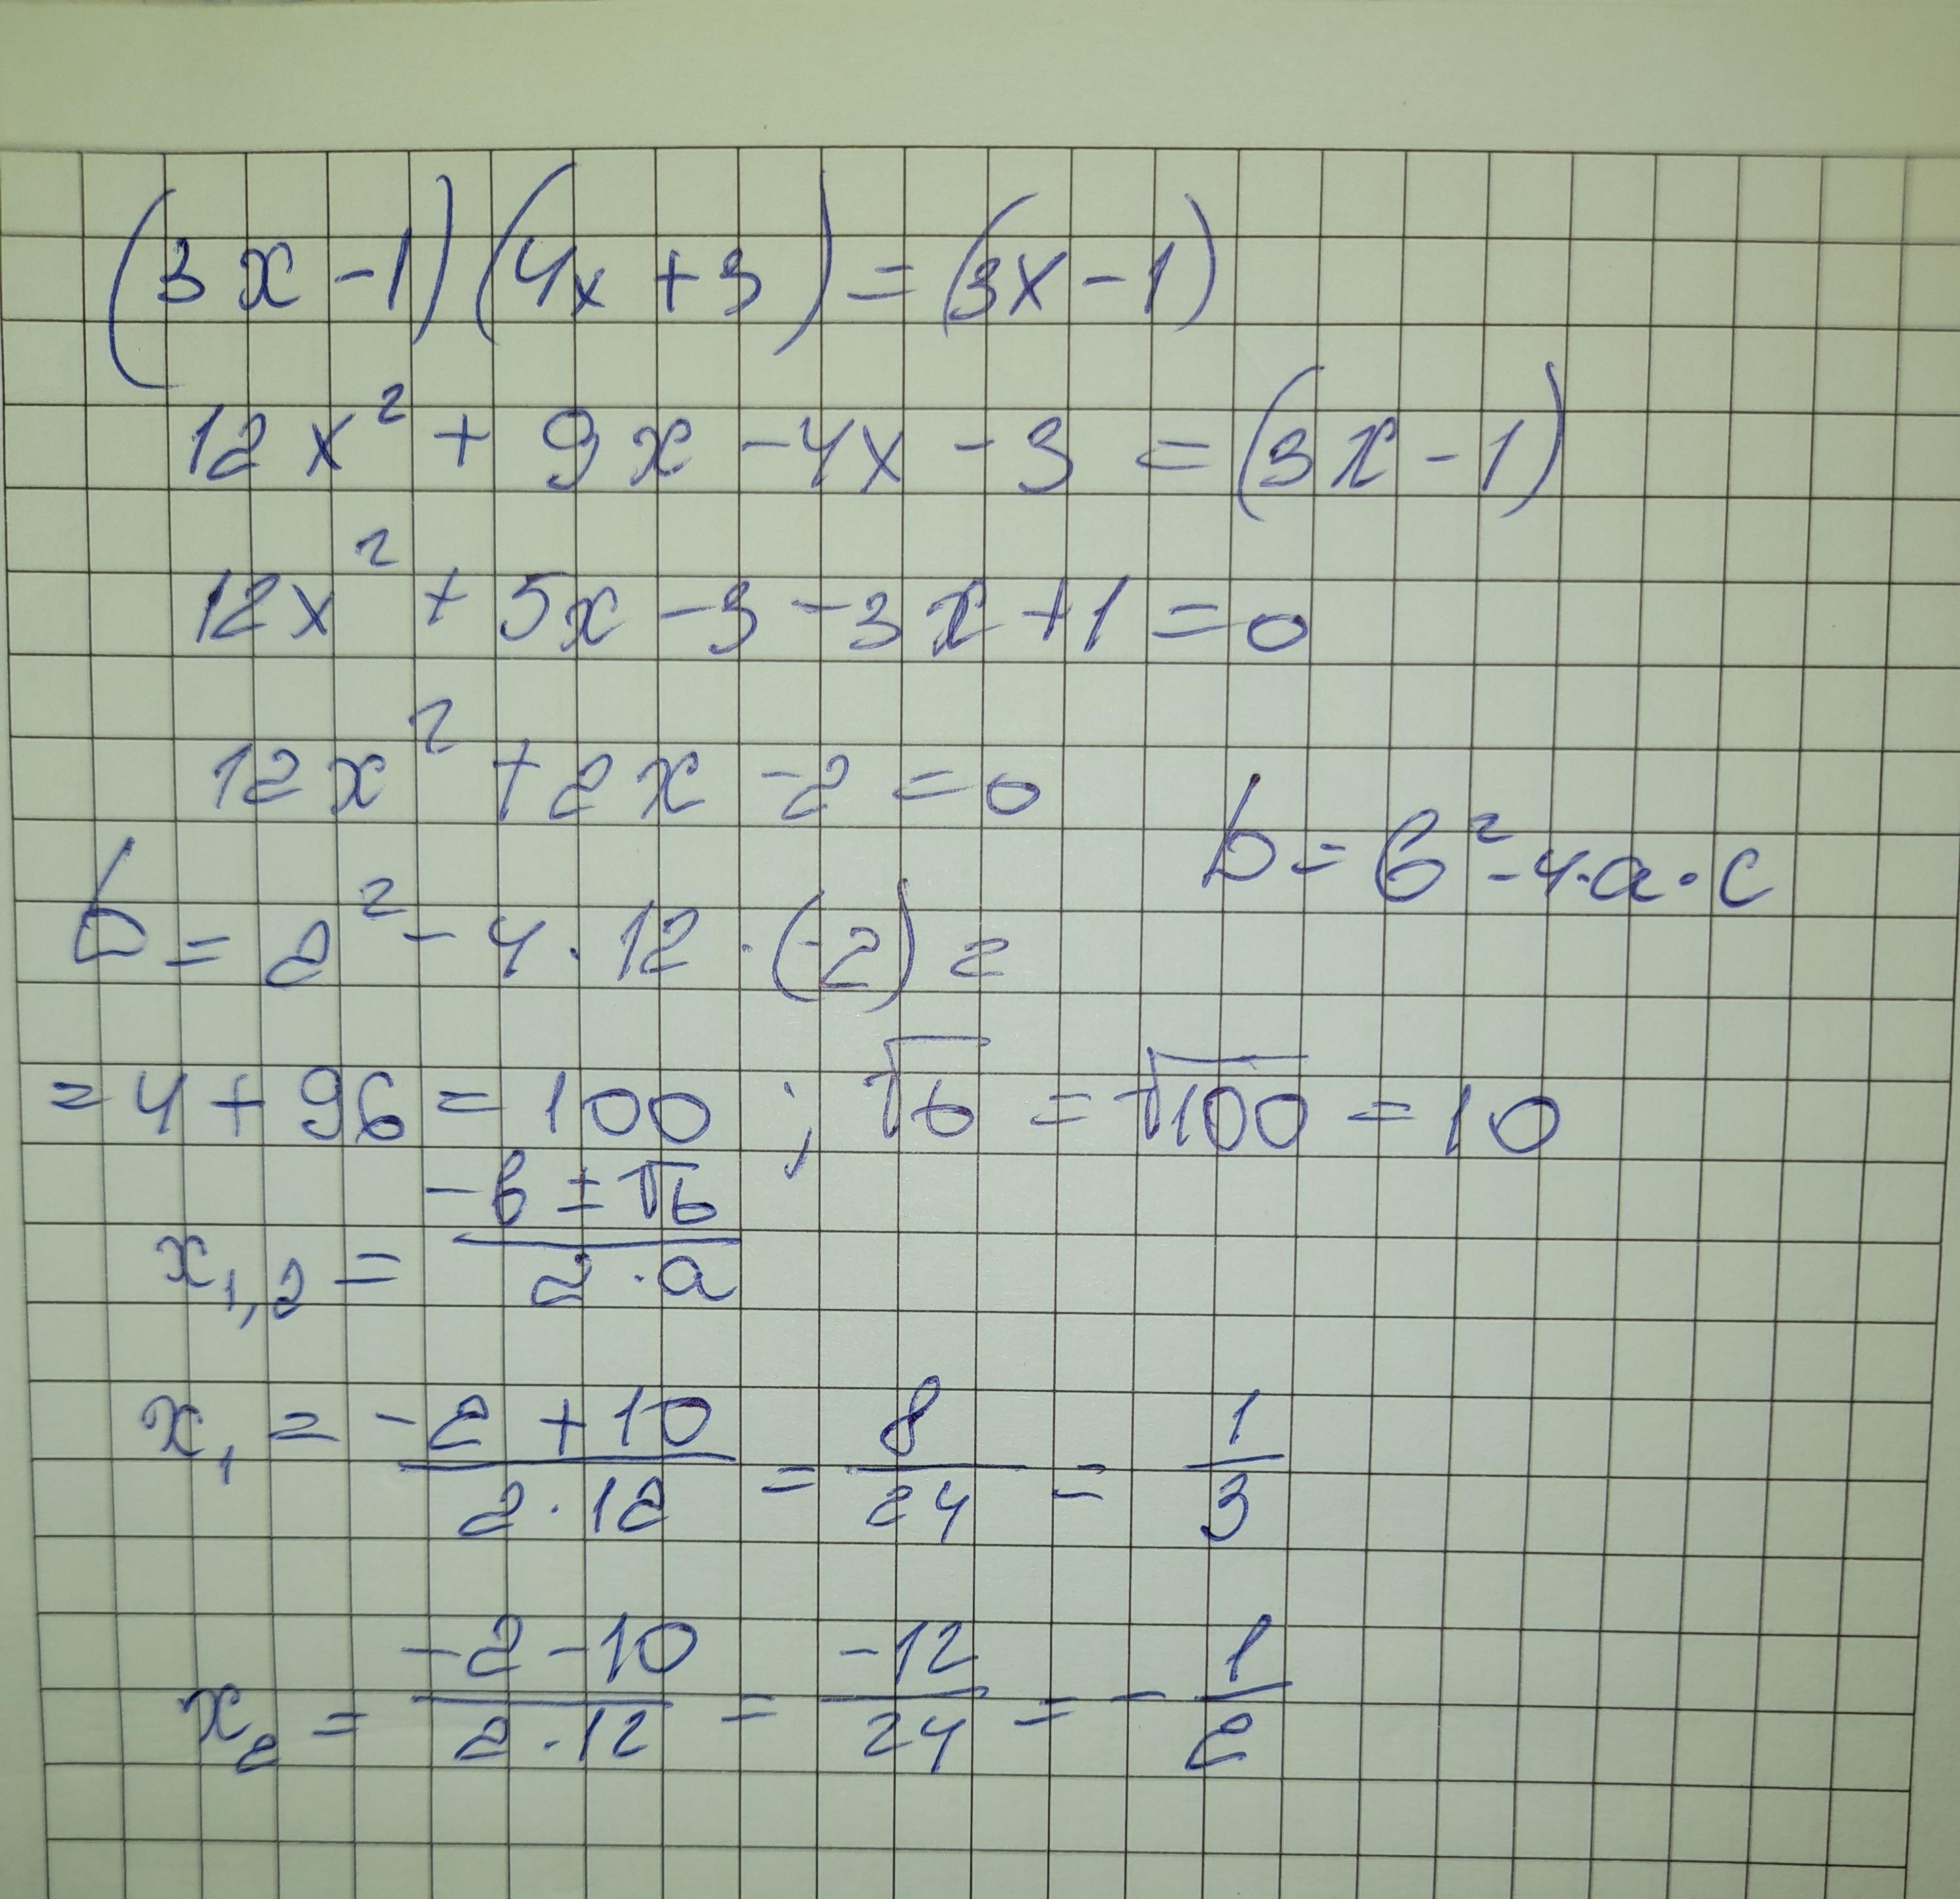 (3x-1)(4x+3)=(3x-1)
12x²+9x-4x-3=(3x-1)
12x²+5x-3-3x+1=0
12x²+2x-2=0
D=b²-4·a·c
D=2²-4·12·(-2)=
=4+96=100; √D=√100=10
x₁,₂=(-b±√D)/(2·a)
x₁=(-2+10)/(2·12)=8/24=1/3
x₂=(-2-10)/(2·12)=-12/24=-1/2